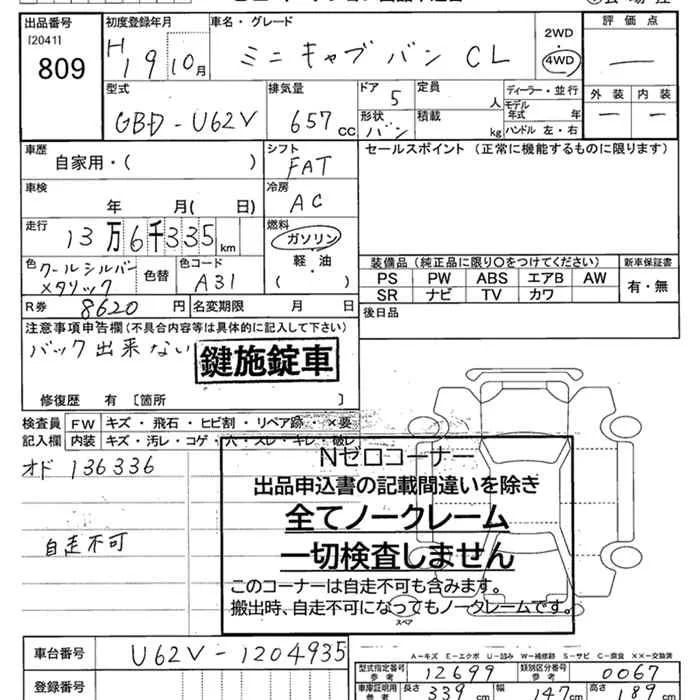 出品番号 初度登録年月 車名・グレード 評価点
[2041] H19 10月 ミニキャブバン CL 2WD 4WD —
809
型式 排気量 ドア 定員 ディーラー・並行 外装 内装
GBD-U62V 657cc 5 人 モデル年式 年 — —
形状 バン 積載 kg ハンドル 左・右
車歴 シフト セールスポイント (正常に機能するものに限ります)
自家用・( ) FAT
車検 冷房
年 月( 日) AC
走行 燃料
13万6千335km ガソリン
軽油
( )
色 クールシルバーメタリック 色替 色コード A31
装備品 (純正品に限り○をつけてください) 新車保証書
PS PW ABS エアB AW 有・無
SR ナビ TV カワ
R券 8620円 名変期限 月 日 後日品
注意事項申告欄(不具合内容等は具体的に記入して下さい)
バック出来ない 鍵施錠車
修復歴 有 〔箇所 〕
検査員 FW キズ・飛石・ヒビ割・リペア跡・×要
記入欄 内装 キズ・汚レ・コゲ・穴・スレ・キレ・破レ
オド 136336
自走不可
Nゼロコーナー
出品申込書の記載間違いを除き
全てノークレーム
一切検査しません
このコーナーは自走不可も含みます。
搬出時、自走不可になってもノークレームです。
スペア
A-キズ E-エクボ U-凹み W-補修跡 S-サビ C-腐食 XX-交換済
車台番号 U62V-1204935
型式指定番号 参考 12699 類別区分番号 参考 0067
登録番号
車庫証明用 参考 長さ 339cm 幅 147cm 高さ 89cm